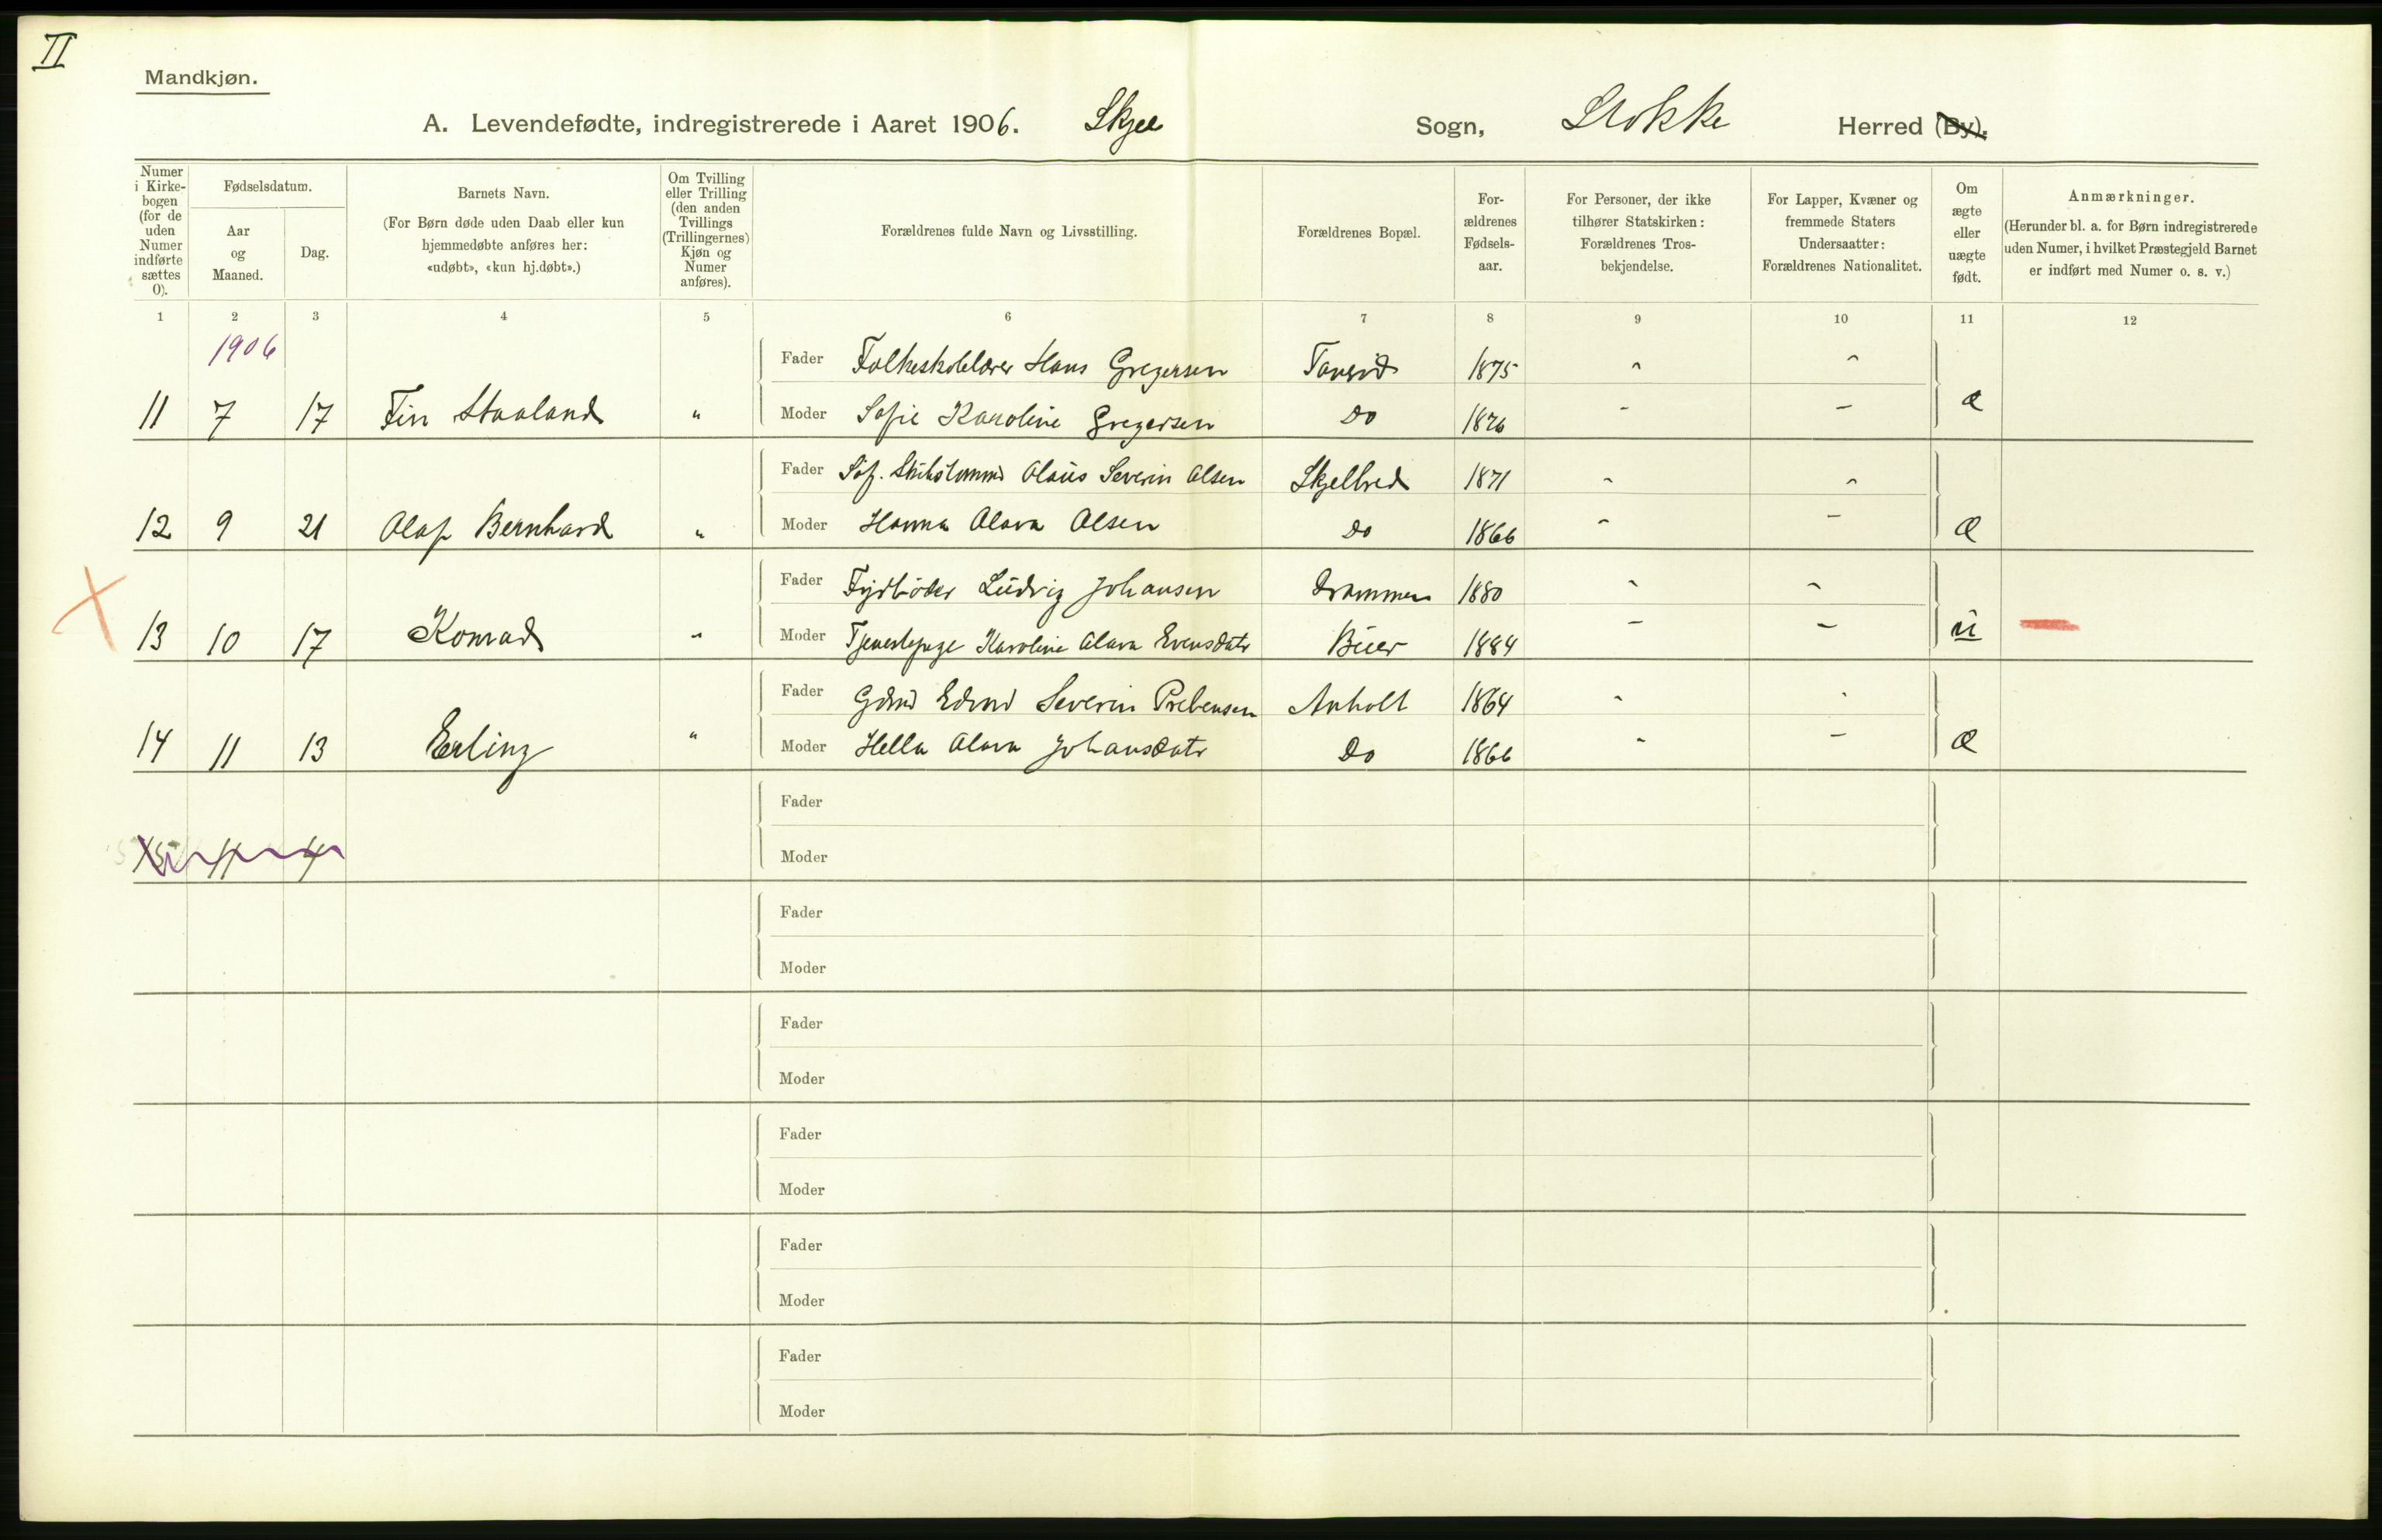 II
Mandkjøn.
A. Levendefødte, indregistrerede i Aaret 1906. Skjee Sogn, Stokke Herred (By).
Numer i Kirke- bogen (for de uden Numer indførte sættes 0).
Fødselsdatum.
Aar og Maaned.
Dag.
Barnets Navn.
(For Børn døde uden Daab eller kun
hjemmedøbte anføres her:
«udøbt», «kun hj.døbt».)
Om Tvilling eller Trilling (den anden Tvillings (Trillingernes) Kjøn og Numer anføres).
Forældrenes fulde Navn og Livsstilling.
Forældrenes Bopæl.
For- ældrenes Fødsels- aar.
For Personer, der ikke
tilhører Statskirken:
Forældrenes Tros-
bekjendelse.
For Lapper, Kvæner og
fremmede Staters
Undersaatter:
Forældrenes Nationalitet.
Om ægte eller uægte født.
Anmærkninger.
(Herunder bl. a. for Børn indregistrerede
uden Numer, i hvilket Præstegjeld Barnet
er indført med Numer o. s. v.)
1 2 3 4 5 6 7 8 9 10 11 12
1906
Fader Folkeskolelærer Hans Gregersen 1875
11 7 17 Fin Staaland " Moder Sofie Karoline Gregersen Do 1876 æ
Fader Olaüs Severin Olsen Skjelbred 1871
12 9 21 Olaf Bernhard " Moder Hanna Olava Olsen Do 1866 æ
Fader Fyrbøder Lüdvig Johansen Drammen 1880
13 10 17 Konrad " Moder Tjenestepige Karoline Olava Evensdatr Büer 1884 ü
Fader Gdmd Edvard Severin Prebensen Anholt 1864
14 11 13 Erling " Moder Hella Olava Johansdatr Do 1866 æ
Fader
15 11 4 Moder
Fader
Moder
Fader
Moder
Fader
Moder
Fader
Moder
Fader
Moder